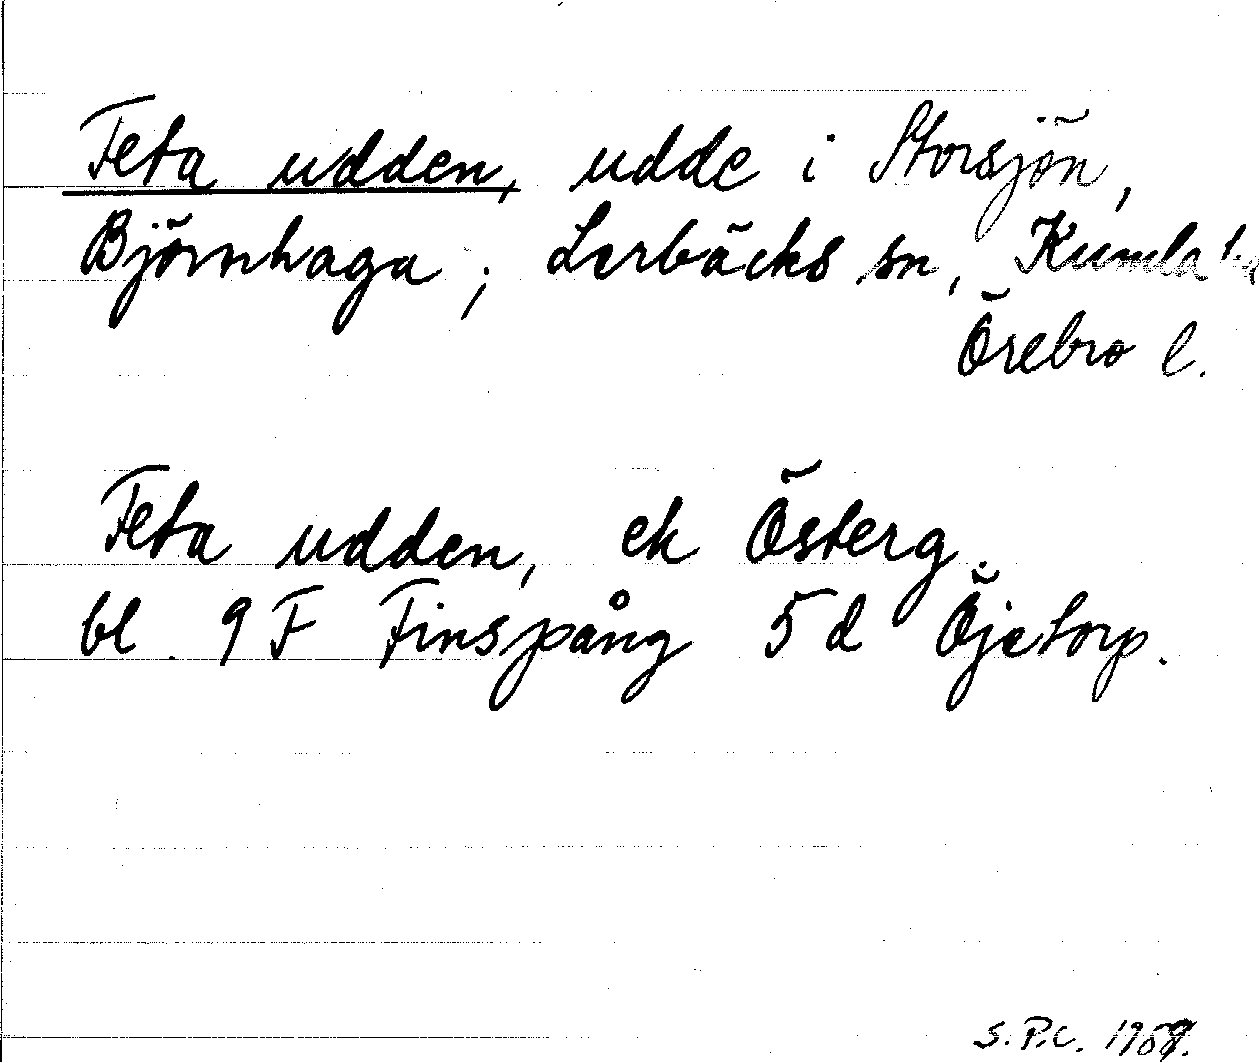 Feta udden, udde i Storsjön,
Björnhaga; Lerbäcks sn, Kumla
Örebro l.
Feta udden, ek Österg.
bl. 9 F Finspång 5 d Öjetorp.
S.P.C.